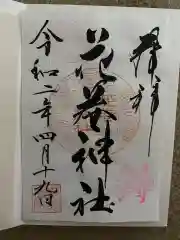 奉拝
花 神社
令和二年四月十九日